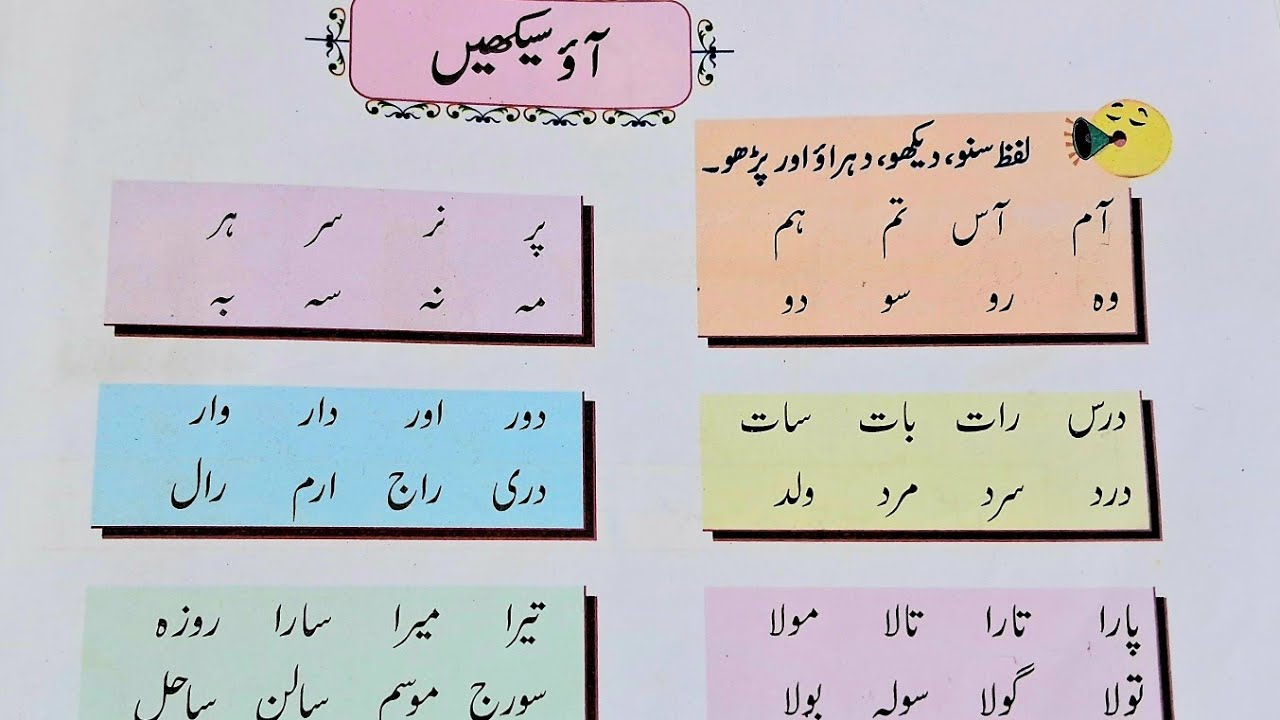 آؤ سیکھیں
لفظ سنو، دیکھو، دہراؤ اور پڑھو۔
آم آس تم ہم
وہ رو سو دو
پر نر سر ہر
مہ نہ سہ بہ
درس رات بات سات
درد سرد مرد ولد
دور اور دار وار
دری راج ارم رال
پارا تارا تالا مولا
تولا گولا سولہ بولا
تیرا میرا سارا روزہ
سورج موسم سالن ساحل